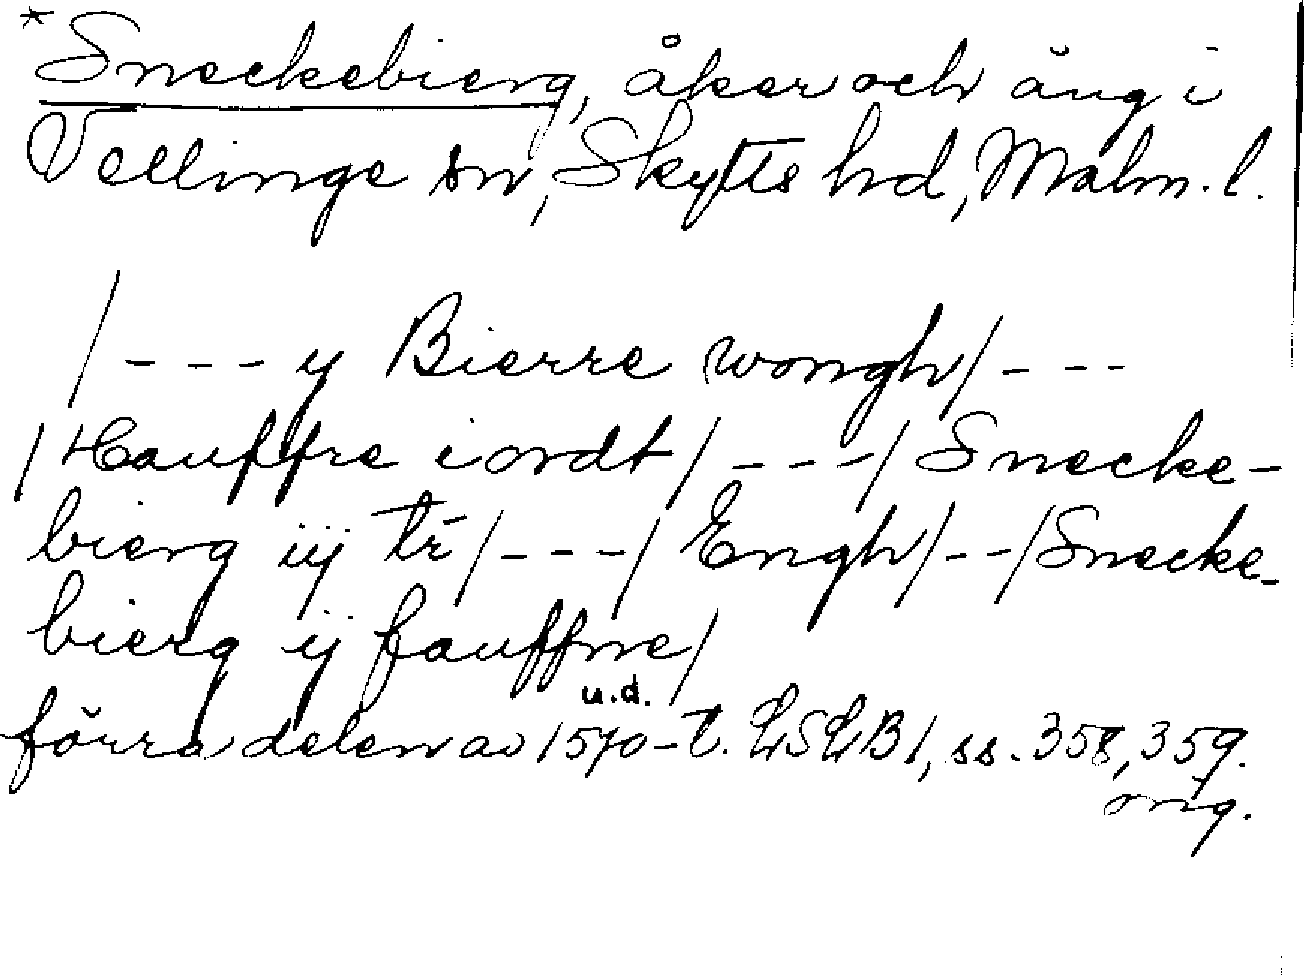 *Sneckebierg, åker och äng i
Vellinge sn, Skytts hd, Malm. l.
/ - - - y Bierre wongh / - - -
/ Hauffre iordt / - - - / Snecke-
bierg iij tr / - - - / Engh / - - / Snecke-
bierg ij fauffne /
u.d.
förra delen av 1570-t. LSLB 1, ss. 358, 359.
orig.